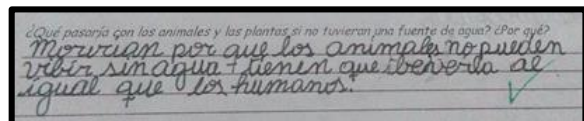 ¿Qué pasaría con los animales y las plantas si no tuvieran una fuente de agua? ¿Por qué?
Morirían por que los animales no pueden
vibir sin agua + tienen que beverla al
igual que los humanos.